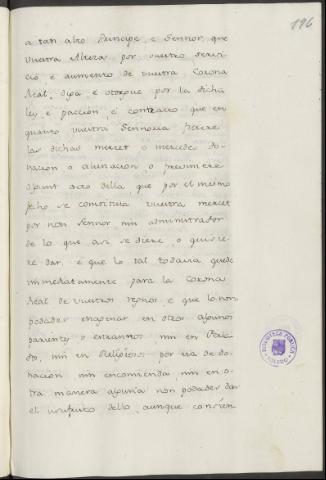 196
a tan alto Principe, e Sennor, que
vuestra Alteza por vuestro servi-
cio e aumento de vuestra Corona
Real, diga e otorgue por la dicha
ley e paccion, e contracto que en
quanto vuestra Sennoria ficiere
las dichas merced o mercedes do-
nacion o alienacion o
acto della que por el mismo
fecho se constituia vuestra merced
por non Sennor nin administrador
de lo que asi se diere, o quisie-
re dar, e que lo tal todavia quede
immediatamente para la Corona
Real de vuestros regnos, e que lo non
podades enagenar en otros algunos
parientes o estrannos, nin en
nin en Religiosos por via de do-
nacion nin encomienda, nin en o-
tra manera alguna non podades dar
el usufruto dello, aunque consien-
BIBLIOTECA PUBLICA
TOLEDO